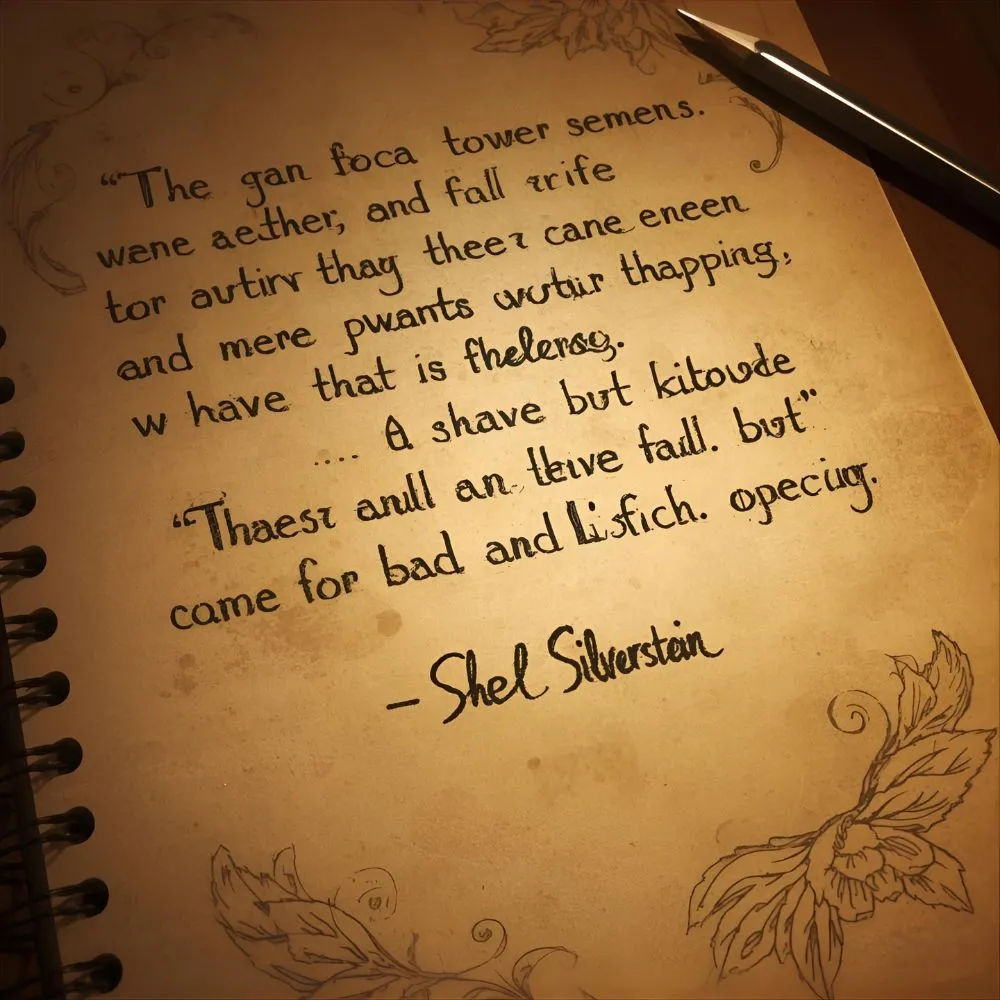 “The gan foca tower semens.
wene aether, and fall
tor thay thee cane eneen
and mere pwants thapping,
w have that is
.... A shave but kitovde
“Thaest anull an fall. but”
came for bad and Lisfich. opeciug.
– Shel Silverstein